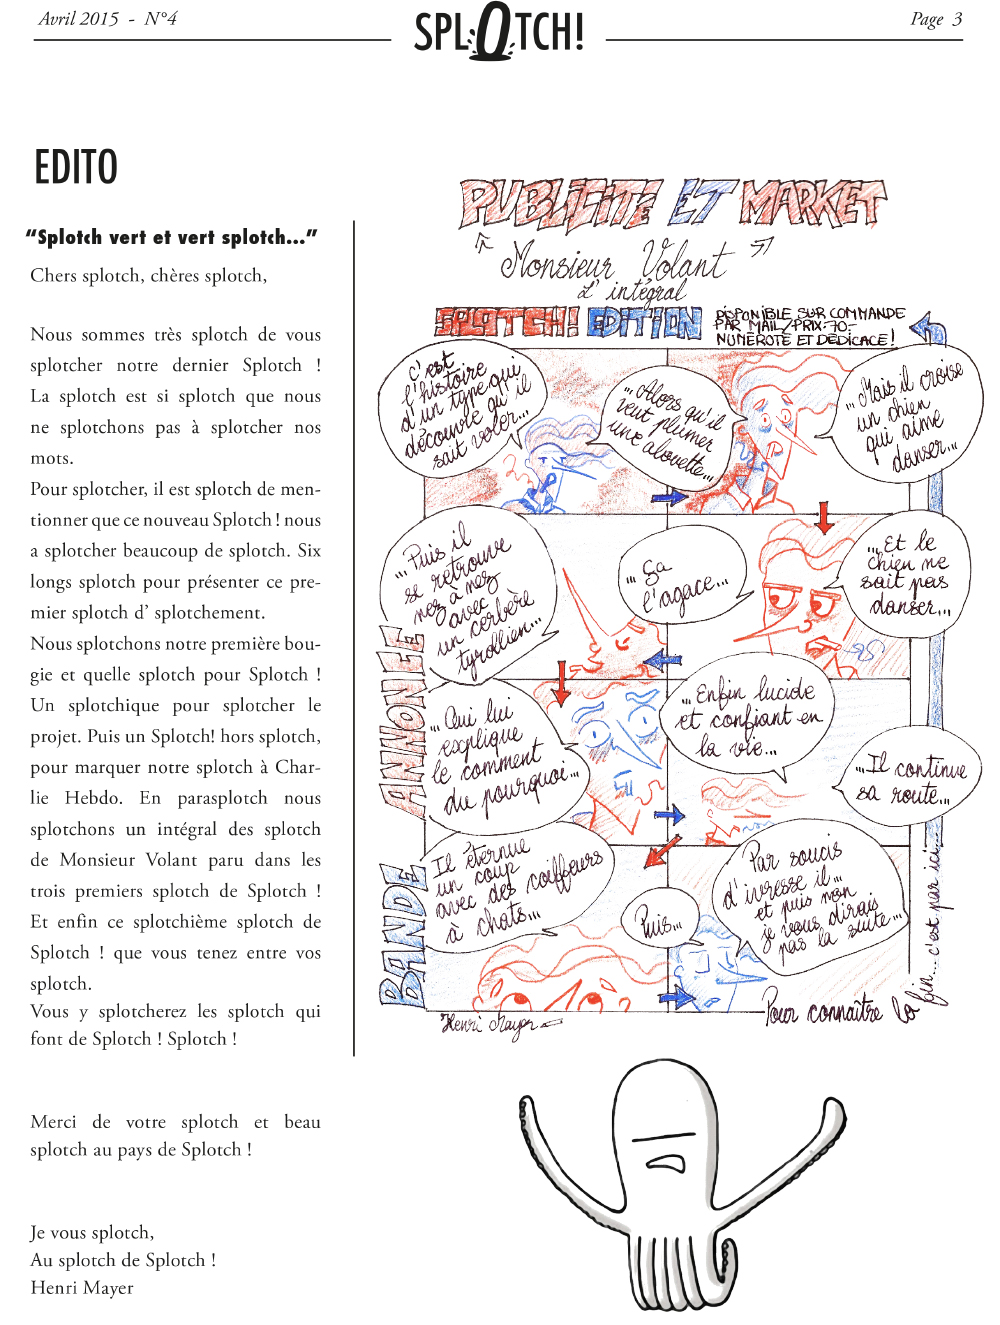 Avril 2015 - N°4
SPLOTCH!
Page 3
EDITO
“Splotch vert et vert splotch...”
Chers splotch, chères splotch,
Nous sommes très splotch de vous
splotcher notre dernier Splotch !
La splotch est si splotch que nous
ne splotchons pas à splotcher nos
mots.
Pour splotcher, il est splotch de men-
tionner que ce nouveau Splotch ! nous
a splotcher beaucoup de splotch. Six
longs splotch pour présenter ce pre-
mier splotch d’ splotchement.
Nous splotchons notre première bou-
gie et quelle splotch pour Splotch !
Un splotchique pour splotcher le
projet. Puis un Splotch! hors splotch,
pour marquer notre splotch à Char-
lie Hebdo. En parasplotch nous
splotchons un intégral des splotch
de Monsieur Volant paru dans les
trois premiers splotch de Splotch !
Et enfin ce splotchième splotch de
Splotch ! que vous tenez entre vos
splotch.
Vous y splotcherez les splotch qui
font de Splotch ! Splotch !
Merci de votre splotch et beau
splotch au pays de Splotch !
Je vous splotch,
Au splotch de Splotch !
Henri Mayer
PUBLICITE ET MARKET
Monsieur Volant
L'intégral
SPLOTCH! EDITION
DISPONIBLE SUR COMMANDE
PAR MAIL/PRIX:70.-
NUMEROTÉ ET DÉDICACÉ!
BANDE ANNONCE
c'est
l'histoire
d'un type qui
découvre qu'il
sait voler...
...Alors qu'il
veut plumer
une alouette...
...Mais il croise
un chien
qui aime
danser...
...Et le
chien ne
sait pas
danser...
...ça
l'agace...
...Puis il
se retrouve
nez à nez
avec
un cerbère
tyrollien...
...Qui lui
explique
le comment
du pourquoi...
...Enfin lucide
et confiant en
la vie...
...Il continue
sa route...
Il éternue
un coup
avec des coiffeurs
à chats...
Puis...
Par soucis
d'ivresse il...
et puis non
je vous dirais
pas la suite...
Pour connaître la fin... c'est par ici...
Henri Mayer